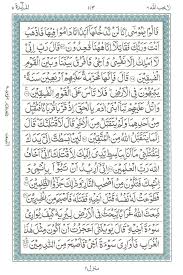 لا يحب الله ٦
المآئدة ٥
قَالُوْا يٰمُوْسٰٓى اِنَّا لَنْ نَّدْخُلَهَآ اَبَدًا مَّا دَامُوْا فِيْهَا فَاذْهَبْ
اَنْتَ وَرَبُّكَ فَقَاتِلَآ اِنَّا هٰهُنَا قٰعِدُوْنَ قَالَ رَبِّ اِنِّيْ
لَآ اَمْلِكُ اِلَّا نَفْسِيْ وَاَخِيْ فَافْرُقْ بَيْنَنَا وَبَيْنَ الْقَوْمِ
الْفٰسِقِيْنَ قَالَ فَاِنَّهَا مُحَرَّمَةٌ عَلَيْهِمْ اَرْبَعِيْنَ سَنَةً
يَتِيْهُوْنَ فِي الْاَرْضِ فَلَا تَاْسَ عَلَى الْقَوْمِ الْفٰسِقِيْنَ
وَاتْلُ عَلَيْهِمْ نَبَاَ ابْنَيْ اٰدَمَ بِالْحَقِّ اِذْ قَرَّبَا قُرْبَانًا فَتُقُبِّلَ
مِنْ اَحَدِهِمَا وَلَمْ يُتَقَبَّلْ مِنَ الْاٰخَرِ قَالَ لَاَقْتُلَنَّكَ قَالَ
اِنَّمَا يَتَقَبَّلُ اللّٰهُ مِنَ الْمُتَّقِيْنَ لَئِنْ بَسَطْتَّ اِلَيَّ يَدَكَ
لِتَقْتُلَنِيْ مَآ اَنَا بِبَاسِطٍ يَّدِيَ اِلَيْكَ لِاَقْتُلَكَ اِنِّيْ اَخَافُ
اللّٰهَ رَبَّ الْعٰلَمِيْنَ اِنِّيْ اُرِيْدُ اَنْ تَبُوْٓاَ بِاِثْمِيْ وَ
اِثْمِكَ فَتَكُوْنَ مِنْ اَصْحٰبِ النَّارِ وَذٰلِكَ جَزٰٓؤُا الظّٰلِمِيْنَ
فَطَوَّعَتْ لَهٗ نَفْسُهٗ قَتْلَ اَخِيْهِ فَقَتَلَهٗ فَاَصْبَحَ مِنَ الْخٰسِرِيْنَ
فَبَعَثَ اللّٰهُ غُرَابًا يَّبْحَثُ فِي الْاَرْضِ لِيُرِيَهٗ كَيْفَ يُوَارِيْ
سَوْءَةَ اَخِيْهِ قَالَ يٰوَيْلَتٰٓى اَعَجَزْتُ اَنْ اَكُوْنَ مِثْلَ هٰذَا
الْغُرَابِ فَاُوَارِيَ سَوْءَةَ اَخِيْ فَاَصْبَحَ مِنَ النّٰدِمِيْنَ
منزل ٢